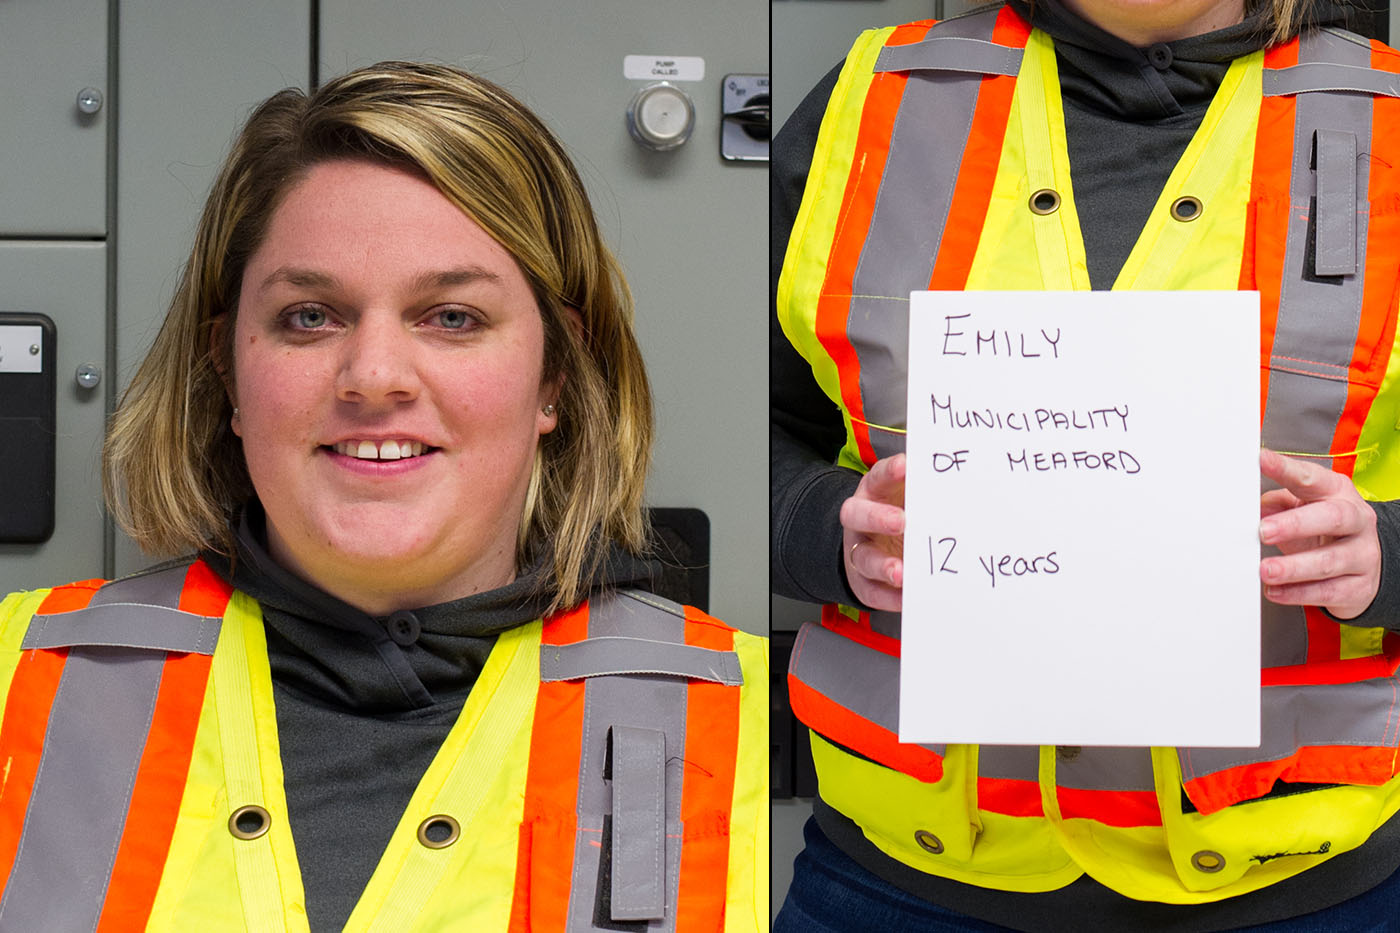 PUMP
CALLED
OFF
EMILY
MUNICIPALITY
OF MEAFORD
12 years